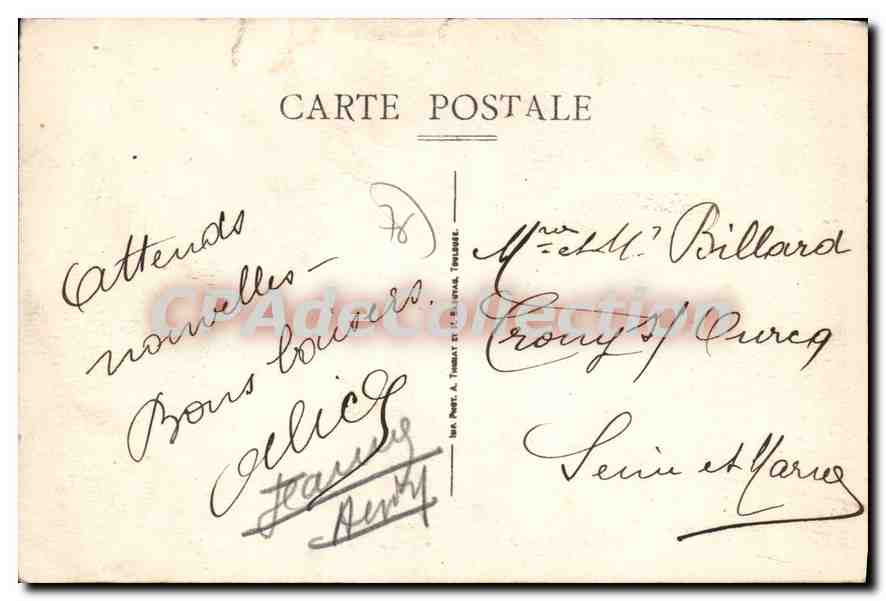 CARTE POSTALE
78
Attends
nouvelles -
Bons baisers.
Alice
Jeanne
Henri
IMP. PHOT. A. THIRIAT ET P. BASUYAU, TOULOUSE.
Mme et Mr Billard
Crouy s/ Ourcq
Seine et Marne
CPAdeCollection